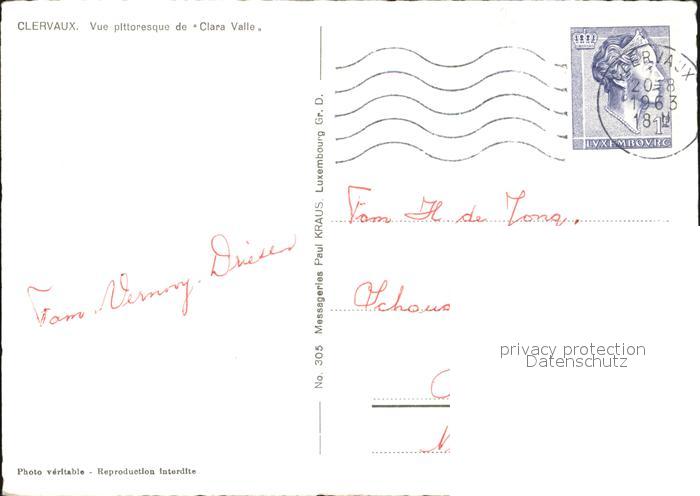 CLERVAUX. Vue pittoresque de "Clara Valle"
CLERVAUX
20-8
1963
18-H
1F
LUXEMBOURG
No. 305 Messageries Paul KRAUS, Luxembourg Gr. D.
Fam H de Jong.
Fam. Vernooy. Driesen
Schous
privacy protection
Datenschutz
Photo véritable - Reproduction interdite